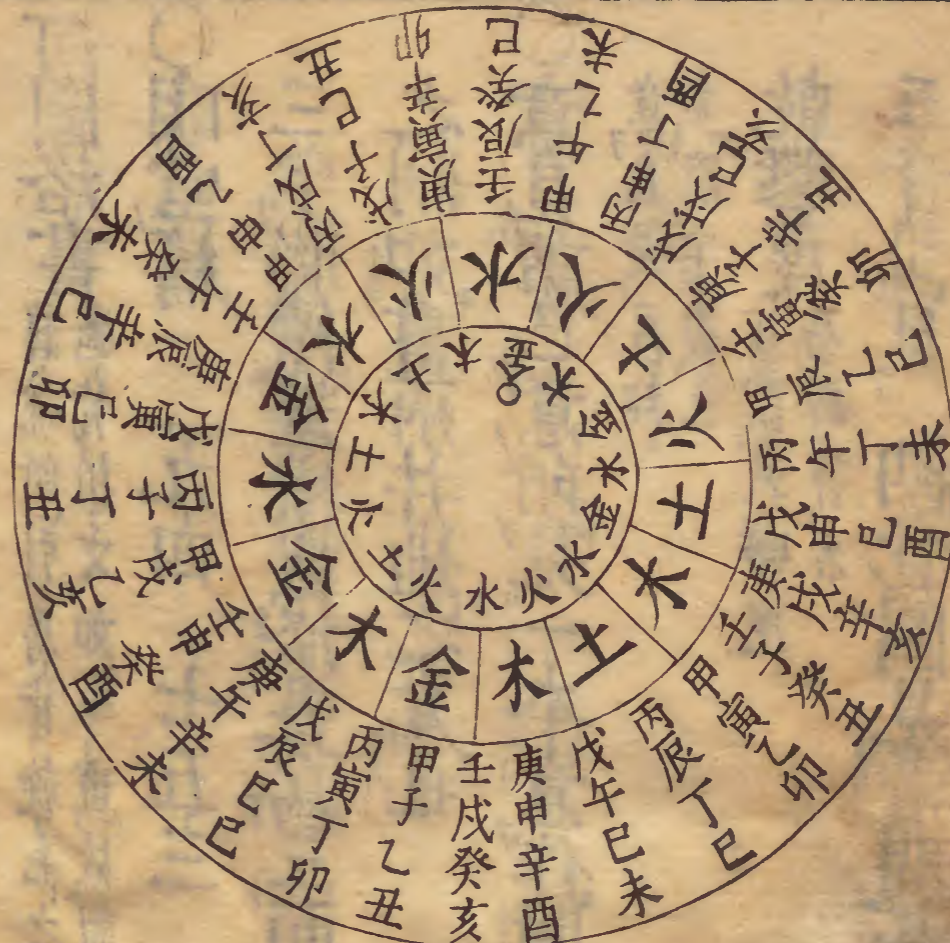 甲子乙丑
丙寅丁卯
戊辰己巳
庚午辛未
壬申癸酉
甲戌乙亥
丙子丁丑
戊寅己卯
庚辰辛巳
壬午癸未
甲申乙酉
丙戌丁亥
戊子己丑
庚寅辛卯
壬辰癸巳
甲午乙未
丙申丁酉
戊戌己亥
庚子辛丑
壬寅癸卯
甲辰乙巳
丙午丁未
戊申己酉
庚戌辛亥
壬子癸丑
甲寅乙卯
丙辰丁巳
戊午己未
庚申辛酉
壬戌癸亥
金
木
金
水
金
木
火
水
火
土
火
土
木
土
木
火
土
火
土
木
土
木
金
木
金
水
金
水
火
水